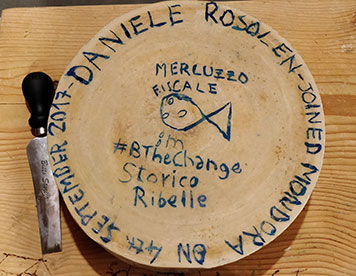 DANIELE ROSOLEN-JOINED MONDORA ON 4TH SEPTEMBER 2017-
MERLUZZO
FISCALE
i'm
#BTheChange
Storico
Ribelle